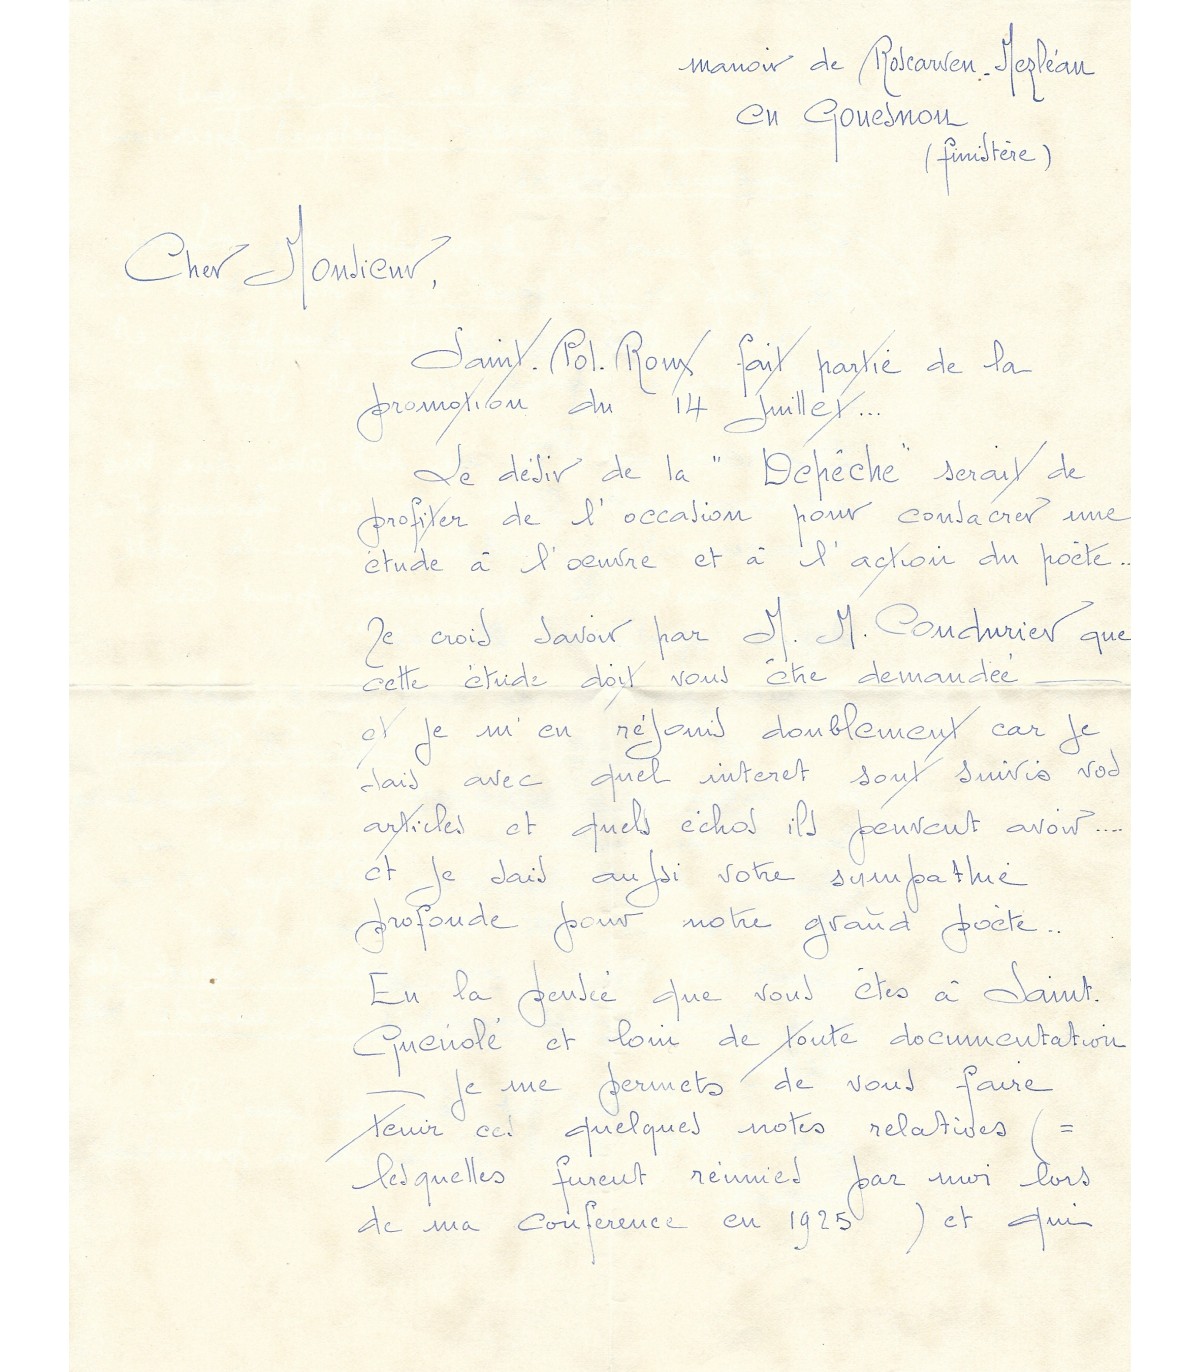 manoir de Roscarven-Mezléan
en Gouesnou
(finistère)
Cher Monsieur,
Saint.Pol.Roux fait partie de la
promotion du 14 Juillet...
Le désir de la "Depêche" serait de
profiter de l'occasion pour consacrer une
étude à l'oeuvre et à l'action du poète..
Je crois savoir par M. M. Coudurier que
cette étude doit vous être demandée —
et je m'en réjouis doublement car je
sais avec quel interet sont suivis vos
articles et quels échos ils peuvent avoir....
et je sais aussi votre sympathie
profonde pour notre grand poète..
En la pensée que vous êtes à Saint.
Guénolé et loin de toute documentation
— je me permets de vous faire
tenir ces quelques notes relatives ( =
lesquelles furent réunies par moi lors
de ma conférence en 1925 ) et qui